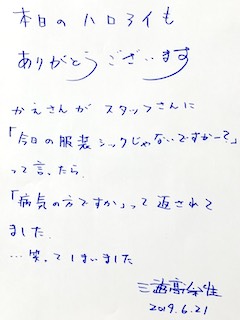 本日のハロアイも
ありがとうございます
かえさんがスタッフさんに
「今日の服装シックじゃないですかー?」
って言ったら
「病気の方ですか」って返されて
ました
…笑ってしまいました
2019.6.21